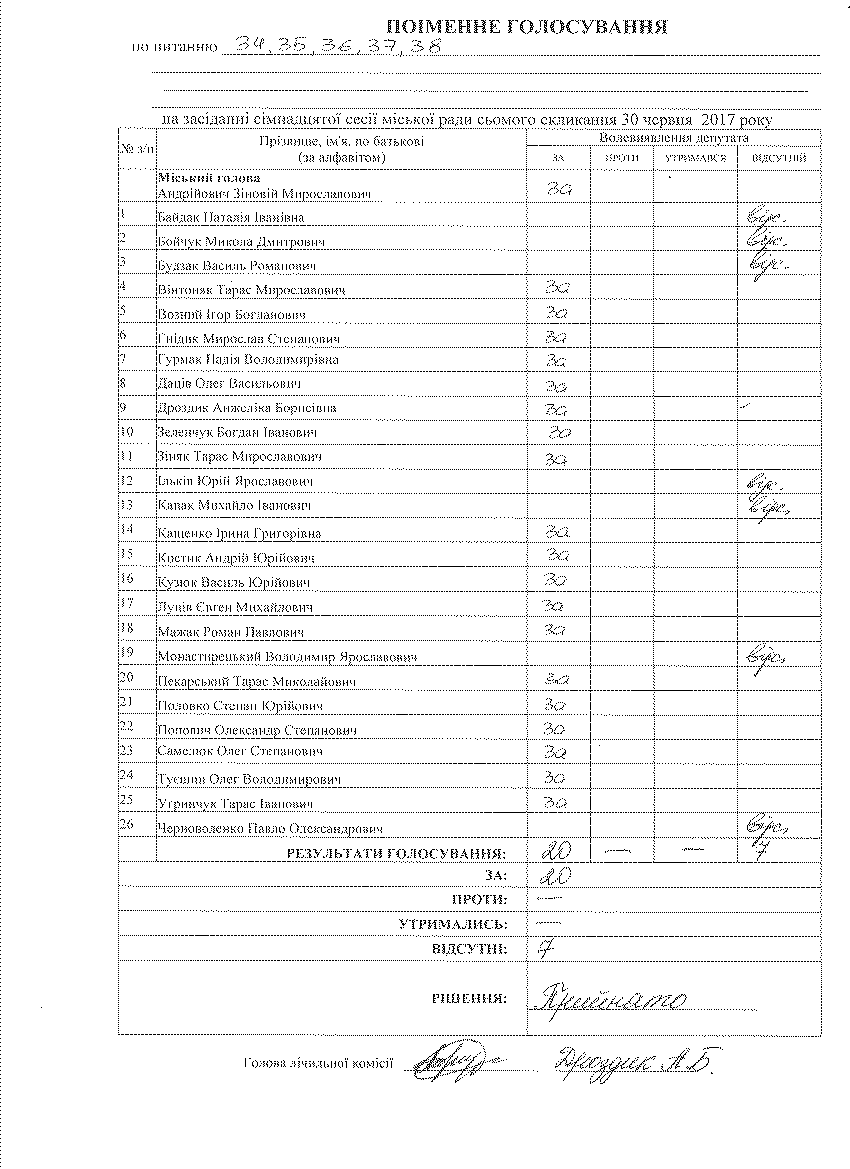 ПОІМЕННЕ ГОЛОСУВАННЯ
по питанню 34, 35, 36, 37, 38
на засіданні сімнадцятої сесії міської ради сьомого скликання 30 червня 2017 року
№ з/п Прізвище, ім'я, по батькові Волевиявлення депутата
(за алфавітом) ЗА ПРОТИ УТРИМАВСЯ ВІДСУТНІЙ
Міський голова
Андрійович Зіновій Мирославович За
1 Байдак Наталія Іванівна відс.
2 Бойчук Микола Дмитрович відс.
3 Будзак Василь Романович відс.
4 Вінтоняк Тарас Мирославович За
5 Возний Ігор Богданович За
6 Гнідик Мирослав Степанович За
7 Гурмак Надія Володимирівна За
8 Даців Олег Васильович За
9 Дроздик Анжеліка Борисівна За
10 Зеленчук Богдан Іванович За
11 Зіняк Тарас Мирославович За
12 Ільків Юрій Ярославович відс.
13 Кавак Михайло Іванович відс.
14 Кащенко Ірина Григорівна За
15 Костик Андрій Юрійович За
16 Кузюк Василь Юрійович За
17 Лунів Євген Михайлович За
18 Мажак Роман Павлович За
19 Монастирецький Володимир Ярославович відс.
20 Пекарський Тарас Миколайович За
21 Половко Степан Юрійович За
22 Попович Олександр Степанович За
23 Самелюк Олег Степанович За
24 Олег Володимирович За
25 Угринчук Тарас Іванович За
26 Черноволенко Павло Олександрович відс.
РЕЗУЛЬТАТИ ГОЛОСУВАННЯ: 20 — — 7
ЗА: 20
ПРОТИ: —
УТРИМАЛИСЬ: —
ВІДСУТНІ: 7
РІШЕННЯ: Прийнято
Голова лічильної комісії Дроздик А.Б.